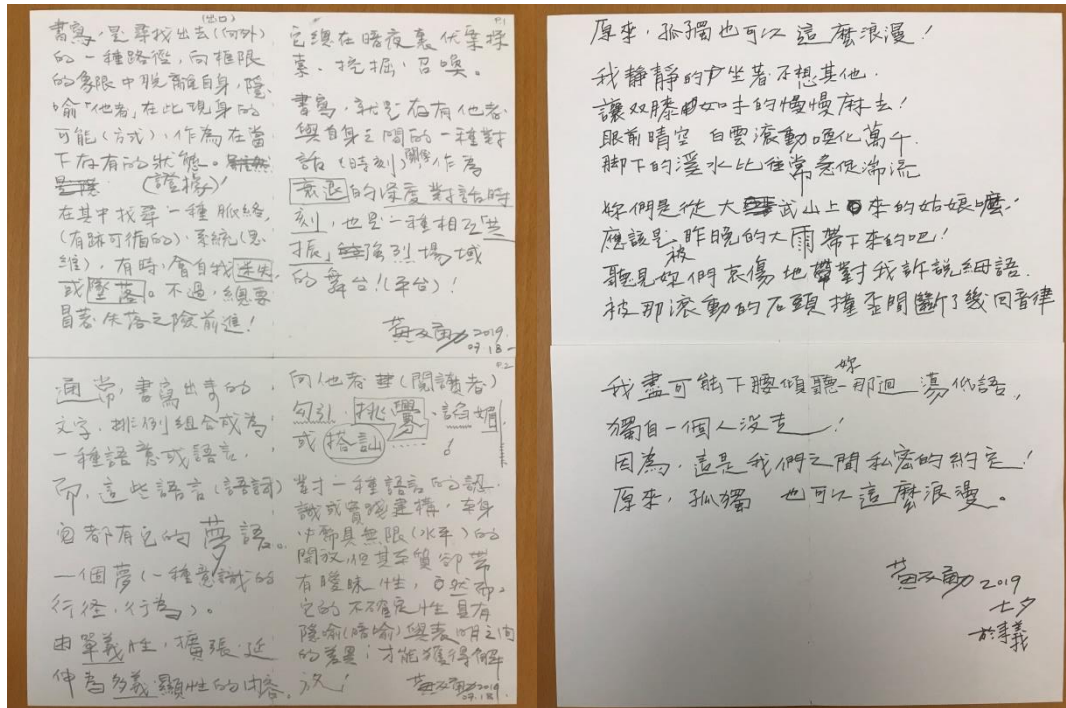 (出口)
書寫,是尋找出去(向外)
的一種路徑,向框限
的象限中脫離自身,隱
喻「他者」在此現身的
可能(方式),作為在當
下存有的狀態。
(證據)!
在其中找尋一種脈絡,
(有跡可循的),系統(思
維),有時,會自我迷失
或墜落。不過,總要
冒著失落之險前進!
P.1
它總在暗夜裏伏案探
索、挖掘、召喚。
書寫,就是存有他者
與自身之間的一種對
話(時刻)作為
衰退的深度對話時
刻,也是一種相互共
振,強烈場域
的舞台!(平台)!
2019.
09.18-
通常,書寫出來的,
文字,排列組合成為
一種語意或語言,
而,這些語言(語詞)
它都有它的夢語。
一個夢(一種意識的
行徑,行為)。
由單義性,擴張、延
伸為多義顯性的內容。
P.2
向他者(閱讀者)
勾引、挑釁、諂媚,
或搭訕!
對於一種語言的認
識或實踐建構,本身
必需具無限(水平)的
開放,但其本質卻帶
有曖昧性,
它的不確定性具有
隱喻(暗喻)與表明之間
的差異;才能獲得解
放!
2019
09.18
原來,孤獨也可以這麼浪漫!
我靜靜的坐著不想其他,
讓双膝如卡的慢慢麻去!
眼前晴空 白雲滾動幻化萬千
脚下的溪水比往常急促湍流
妳們是從大武山上來的姑娘嚒!
應該是被昨晚的大雨帶下來的吧!
聽見妳們哀傷地對我訴說細語,
被那滾動的石頭撞歪間斷了幾回音律
我盡可能下腰傾聽妳那迴盪低語,
獨自一個人沒走!
因為,這是我們之間私密的約定!
原來,孤獨 也可以這麼浪漫。
2019
七夕